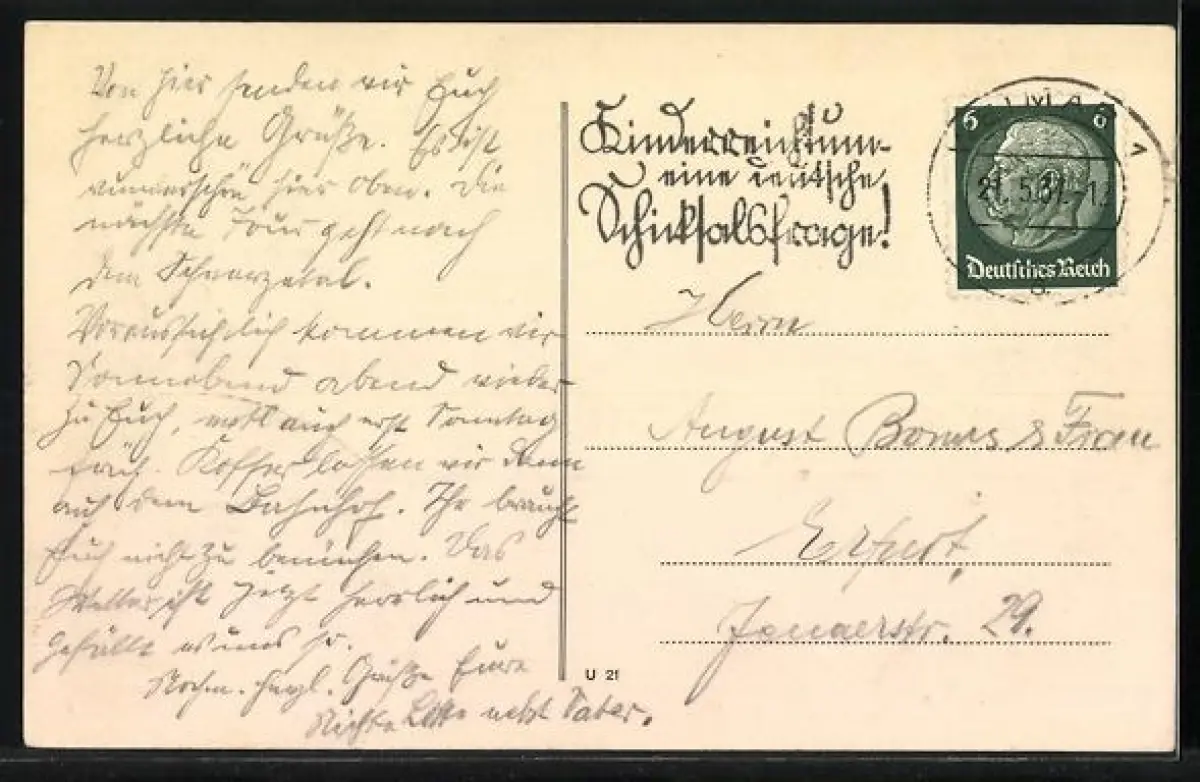 Von hier senden wir Euch
herzliche Grüße. Es ist
wunderschön hier oben. Die
nächste Tour geht nach
dem Schwarzatal.
Voraussichtlich kommen wir
Sonnabend abend wieder
zu Euch, evtl. auch erst Sonntag
früh. Koffer lassen wir dann
auf dem Bahnhof. Ihr braucht
Euch nicht zu bemühen. Das
Wetter ist jetzt herrlich und
gefällt es uns so.
Nochm. herzl. Grüße Eure
Nichte Lotte nebst Vater.
Kinderreichtum-
eine deutsche
Schicksalsfrage!
6 6
21.5.37.-1
Deutsches Reich
Herrn
August & Frau
Erfurt,
Jenaerstr. 29.
U 21